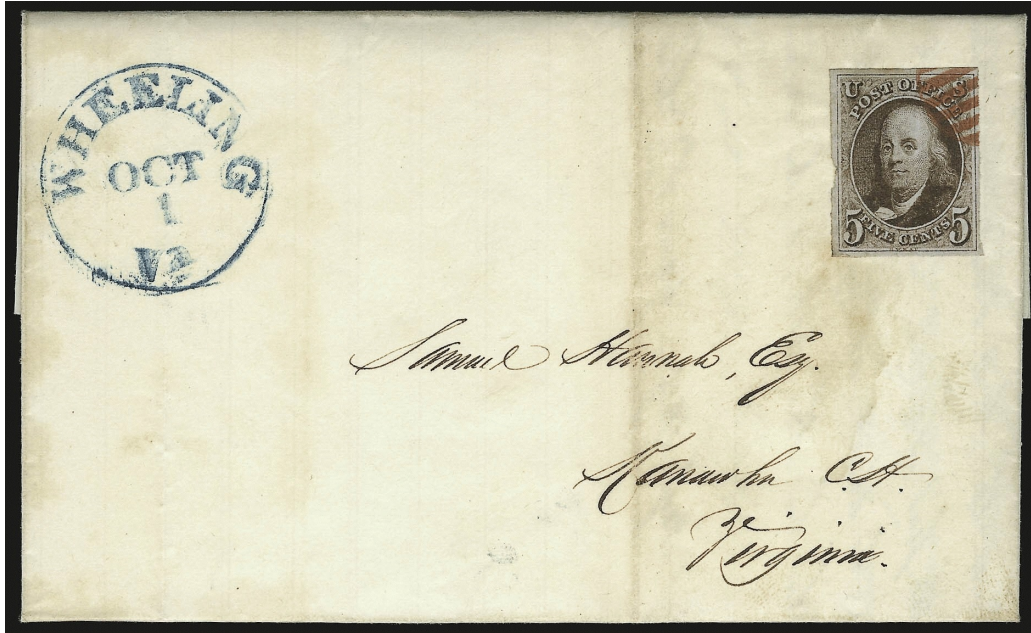 WHEELING
OCT
1
Va
U S
POST OFFICE
5 FIVE CENTS 5
Samuel Hannah, Esq.
Kanawha C.H.
Virginia.